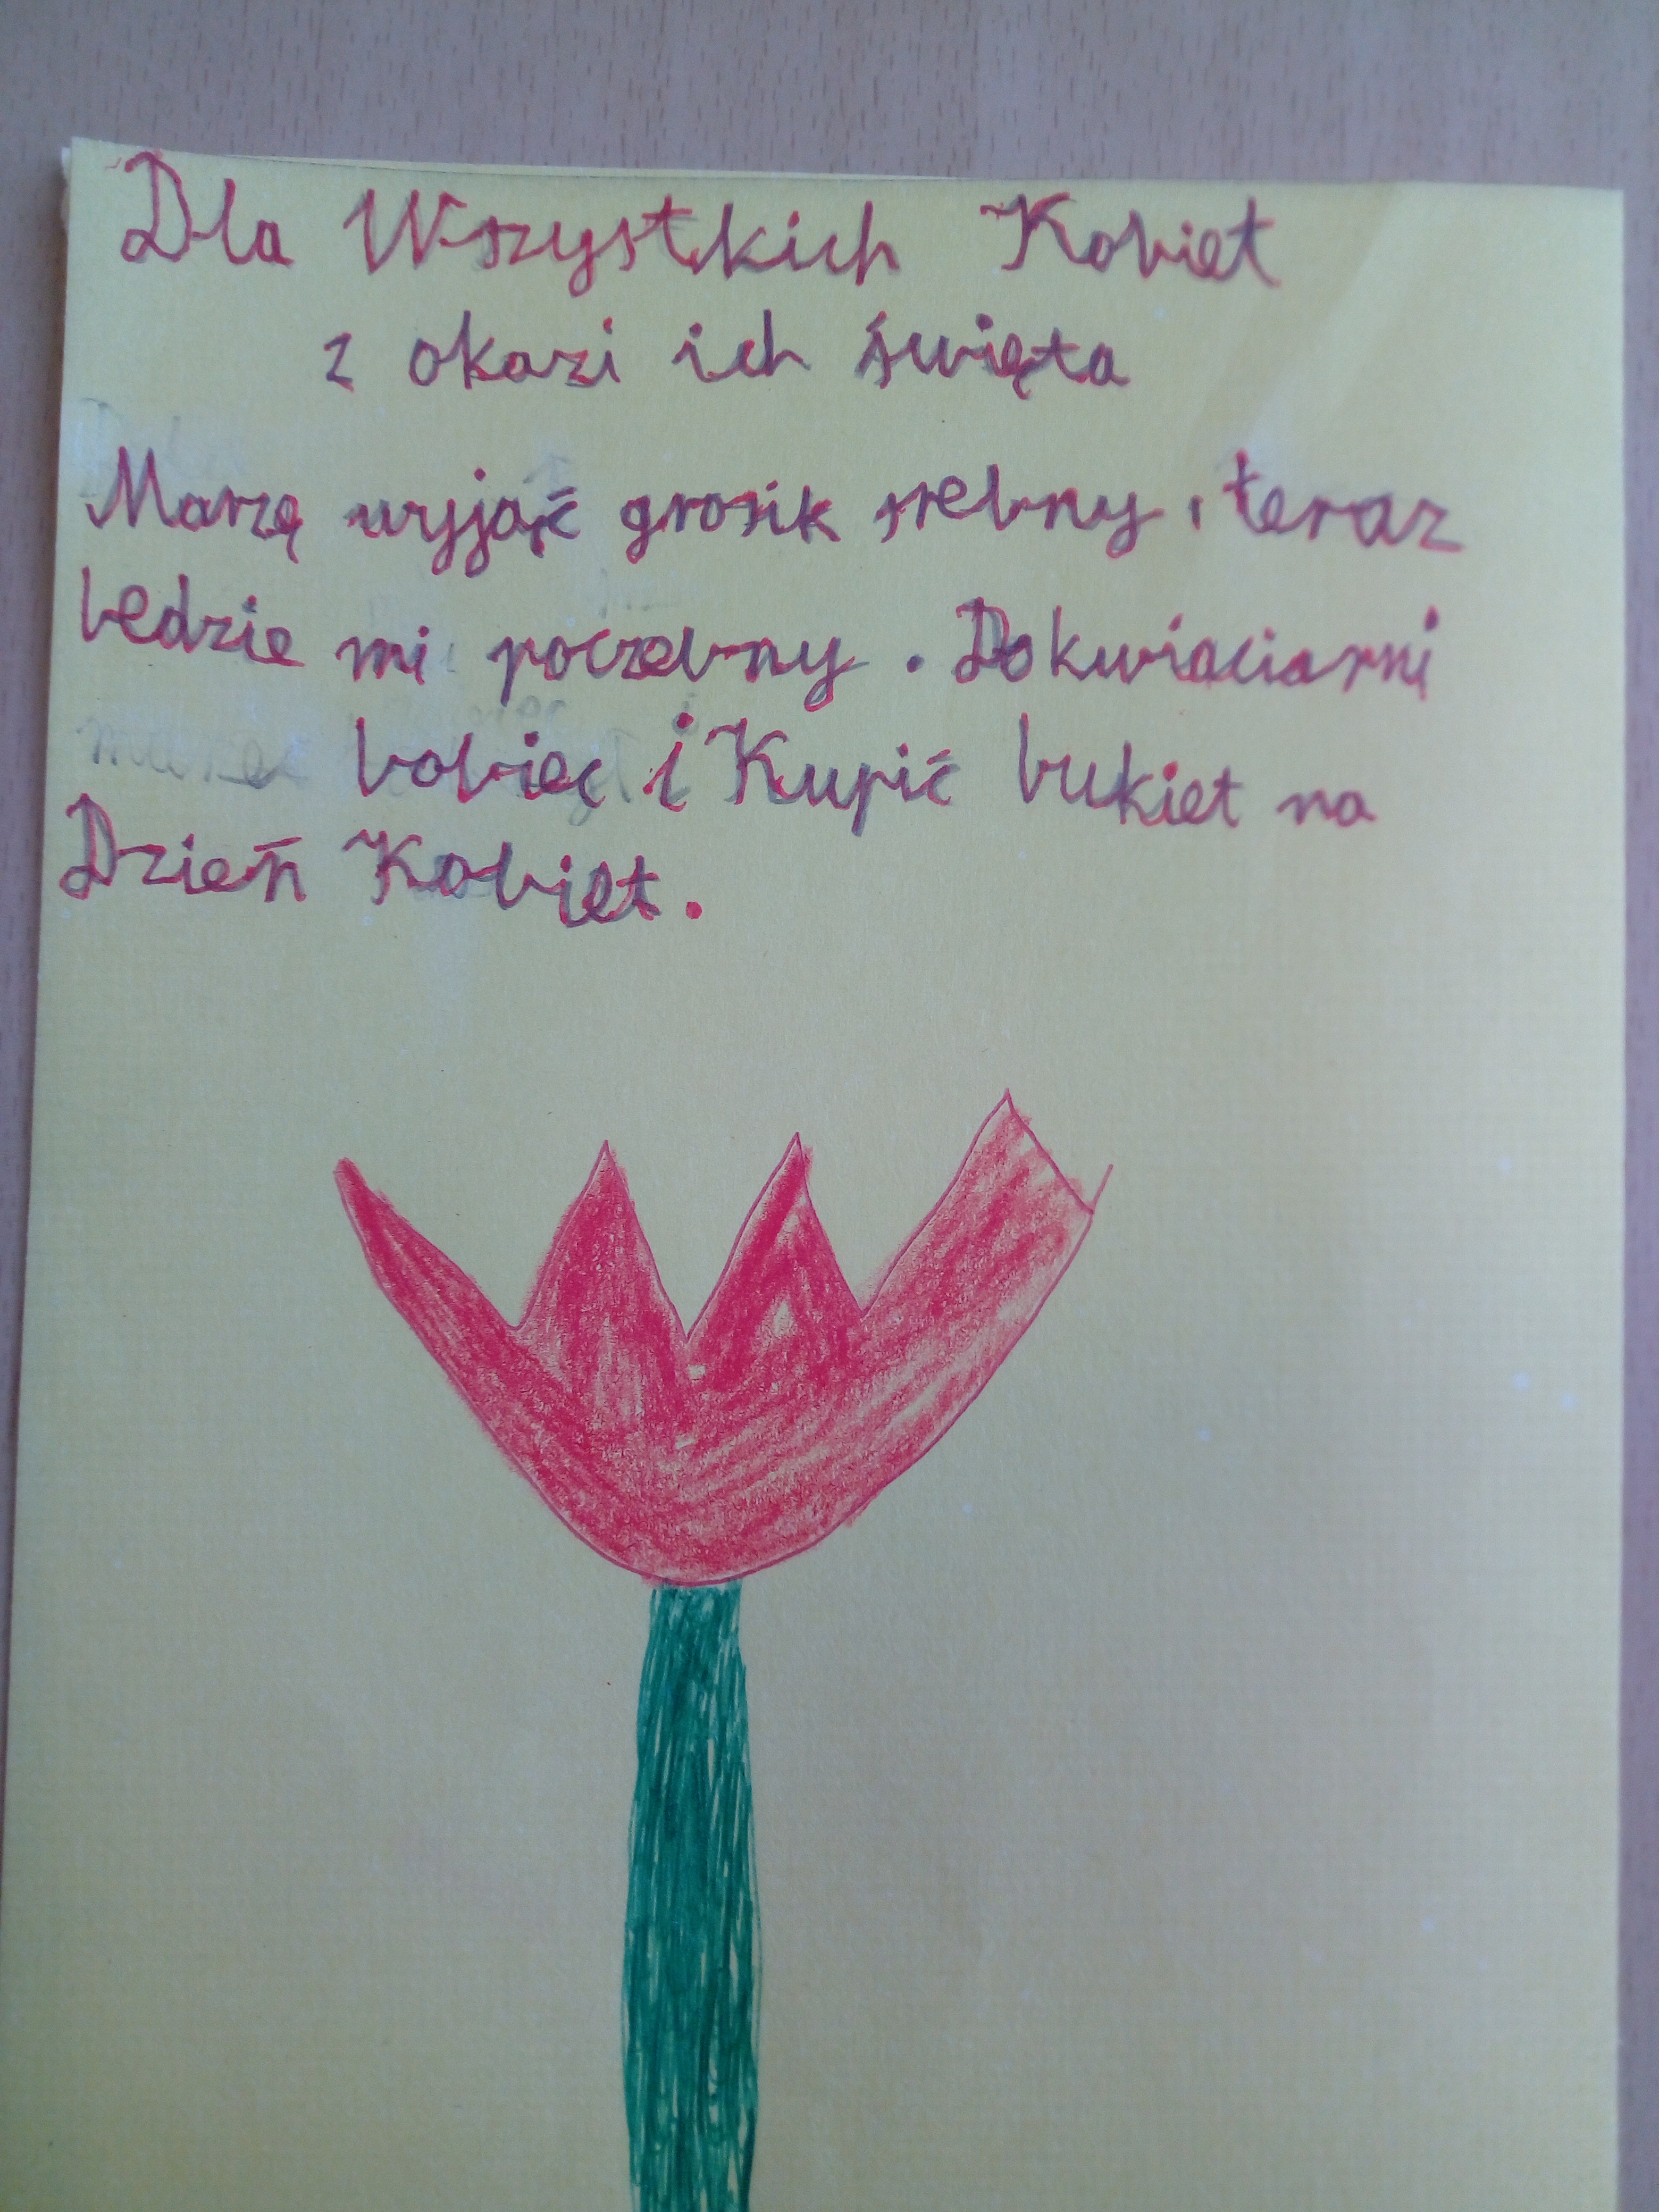 Dla Wszystkich Kobiet
z okazi ich święta
Marzę wyjąć grosik srebny, teraz
bedzie mi poczebny. Do kwiaciarni
bobiec i Kupić bukiet na
Dzień Kobiet.